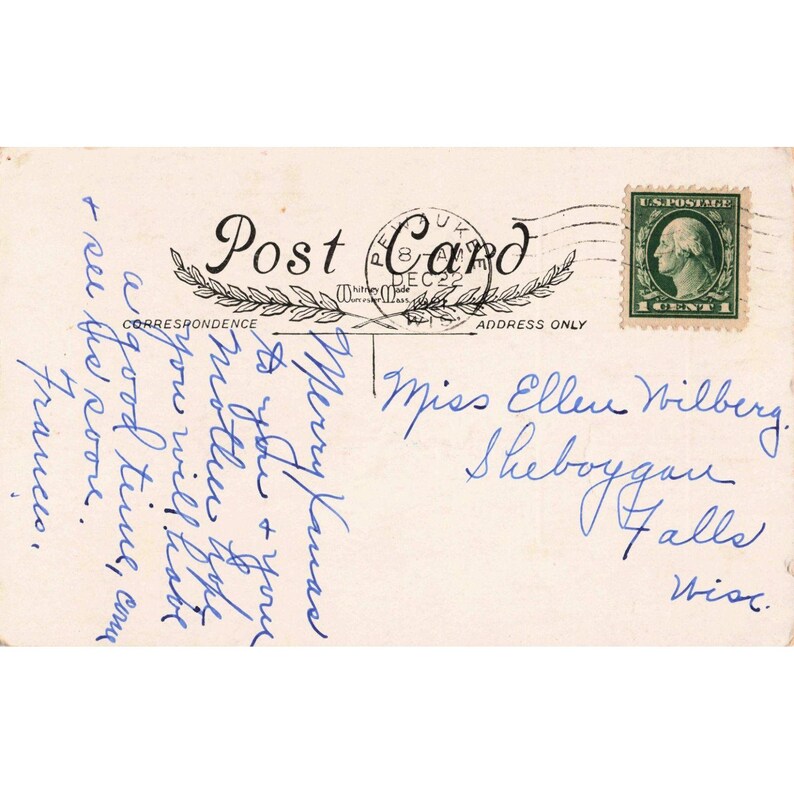 Post Card
PEWAUKEE
8 AM
DEC 22
WIS.
U.S. POSTAGE
1 CENT 1
Whitney Made
Worcester Mass.
CORRESPONDENCE
ADDRESS ONLY
Merry Xmas
to you & your
Mother hope
you will have
a good time, come
& see us soon.
Frances.
Miss Ellen Wilberg.
Sheboygan
Falls
Wisc.